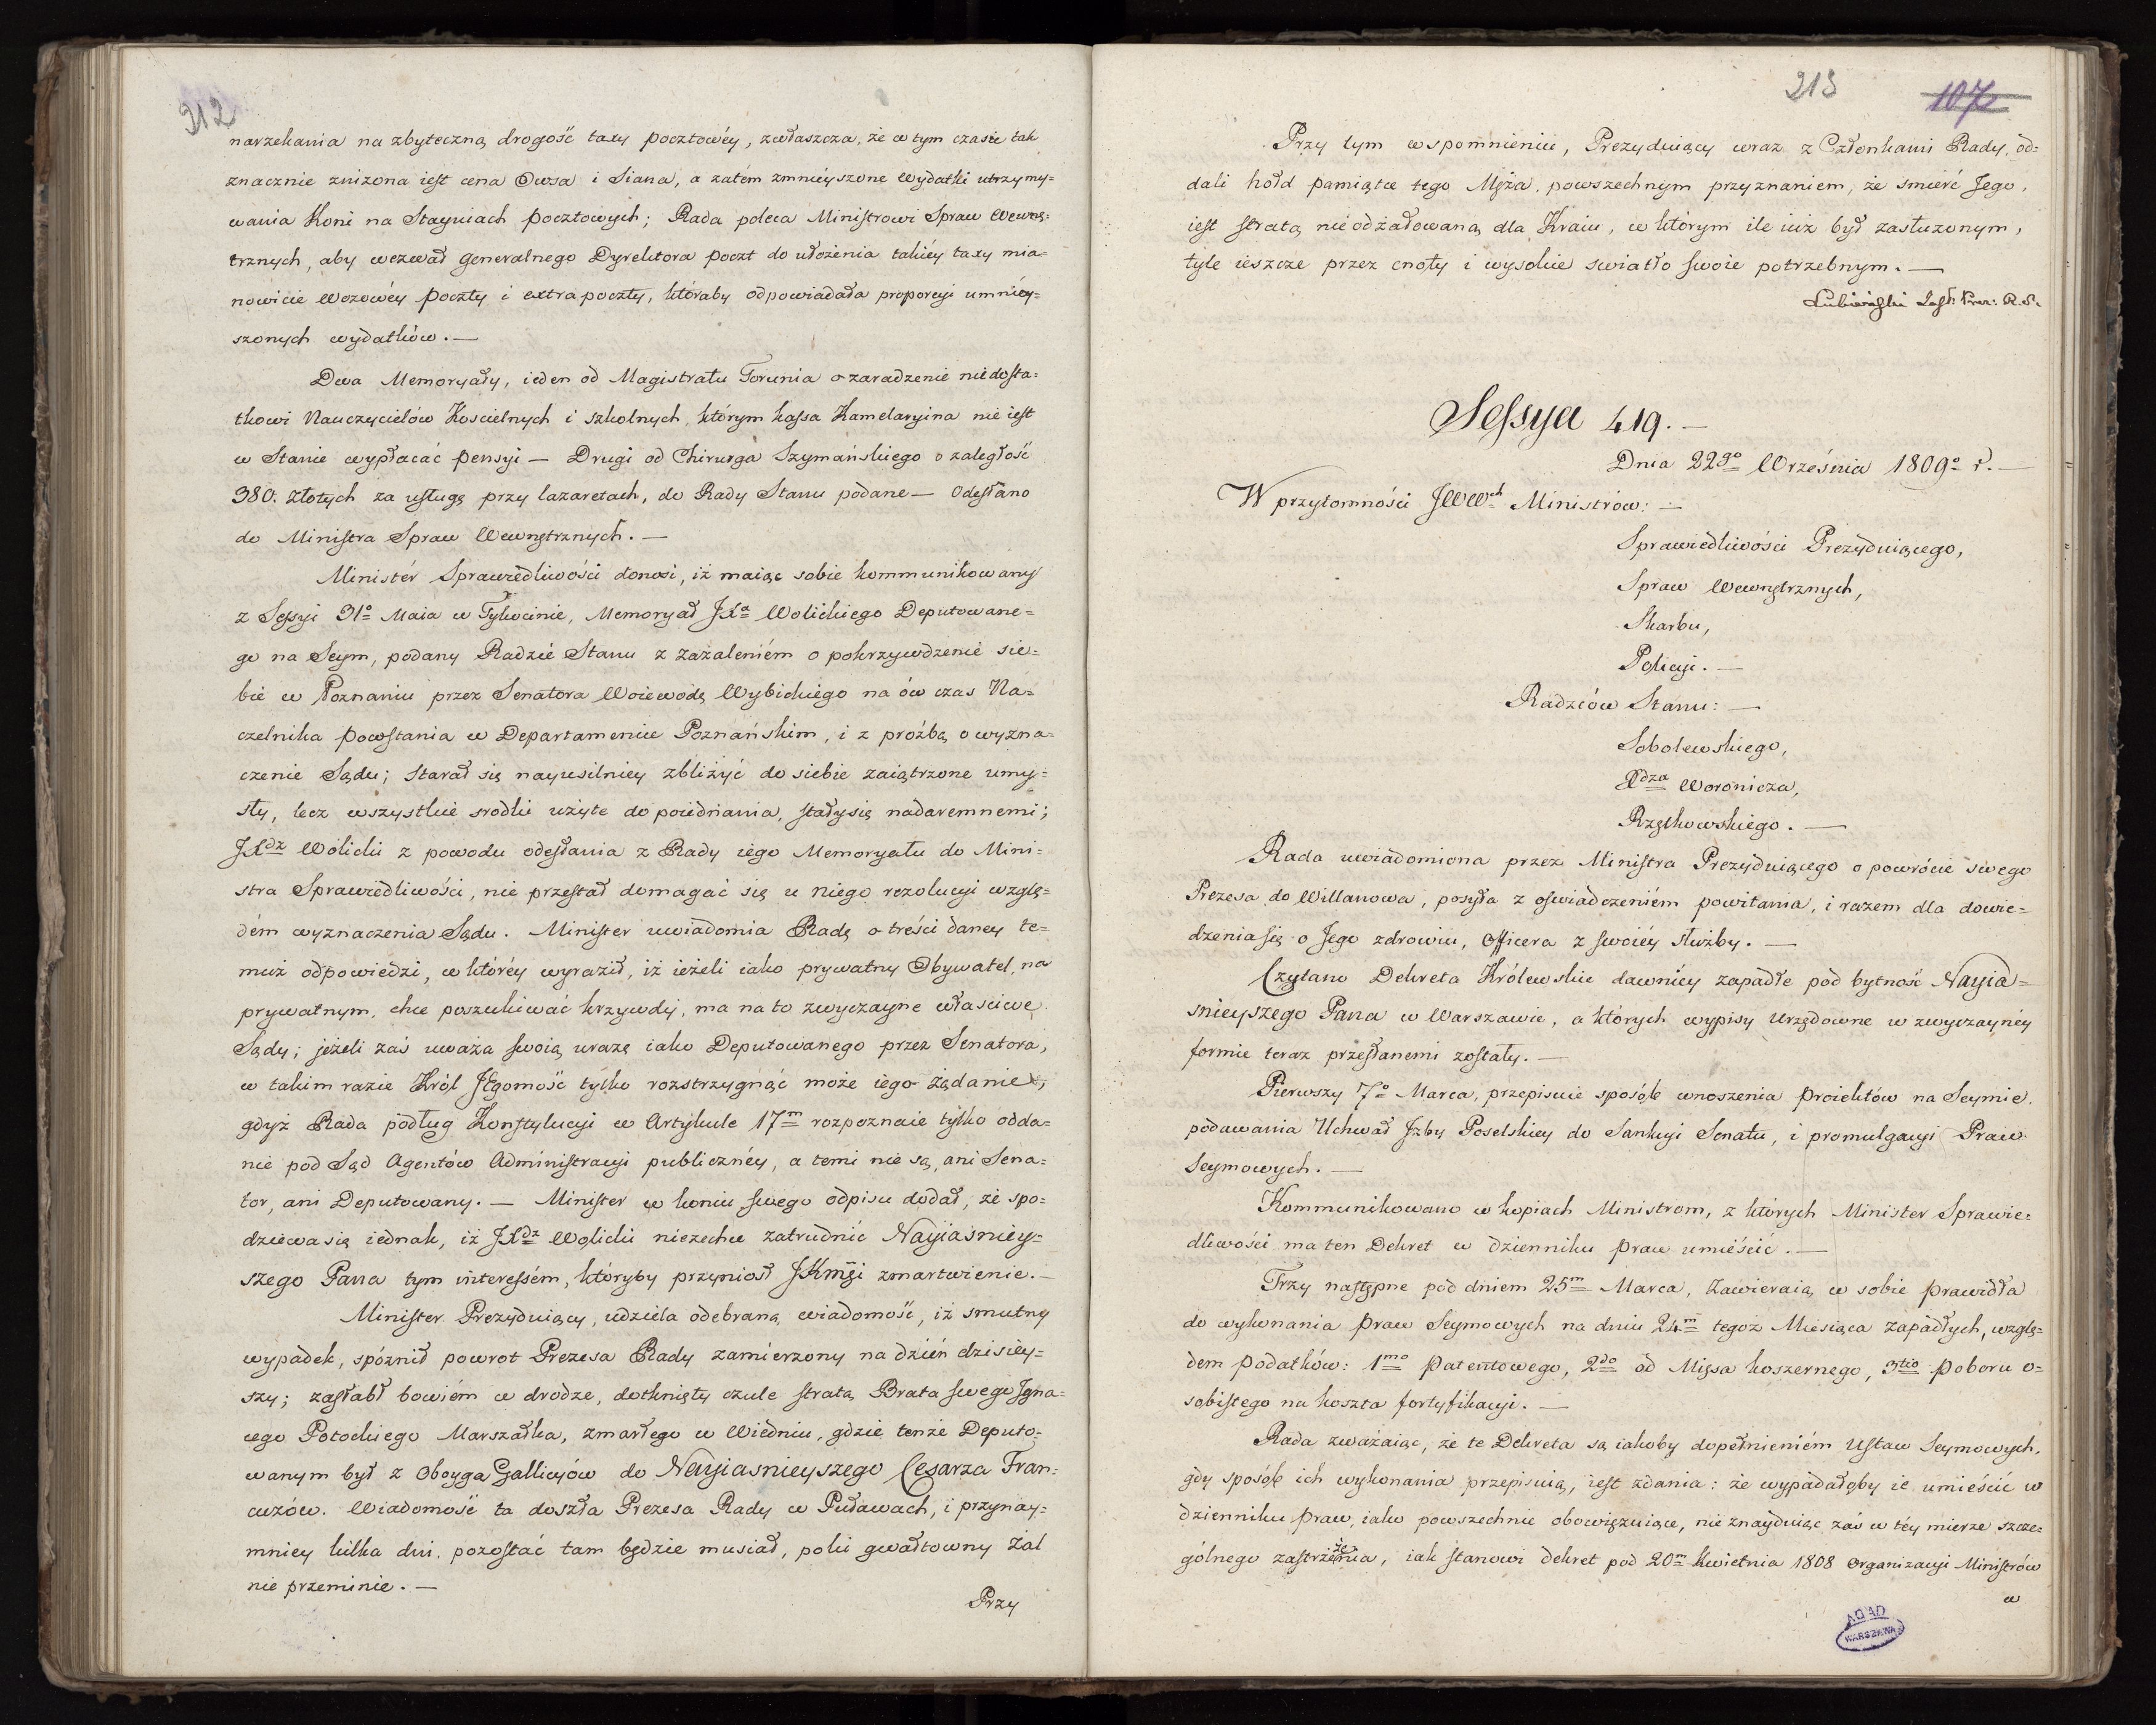 212
narzekania na zbyteczną drogość taxy pocztowéy, zwłaszcza, że w tym czasie tak
znacznie zniżona iest cena Owsa i Siana, a zatém zmnieyszone wydatki utrzymy=
wania Koni na Stayniach pocztowych; Rada poleca Ministrowi Spraw Wewnę=
trznych, aby wezwał Generalnego Dyrektora poczt do ułożenia takiéy taxy mia=
nowicie Wozowéy poczty i extrapoczty, któraby odpowiadała proporcyi umniey=
szonych wydatków. —
Dwa Memoryały, ieden od Magistratu Torunia o zaradzenie niedosta=
tkowi Nauczycielów Koscielnych i szkolnych, którym kassa Kamelaryina nie iest
w Stanie wypłacać pensyi — Drugi od Chirurga Szymańskiego o zaległość
380. złotych za usługę przy lazaretach, do Rady Stanu podane — Odesłano
do Ministra Spraw Wewnętrznych. —
Ministér Sprawiedliwości donosi, iż maiąc sobie kommunikowany
z Sessyi 31º Maia w Tykocinie, Memoryał JXa Wolickiego Deputowane=
go na Seym, podany Radzie Stanu z zażaleniém o pokrzywdzenie sie=
bie w Poznaniu przez Senatora Woiewodę Wybickiego na ów czas Na=
czelnika powstania w Departamencie Poznańskim, i z prożbą o wyzna=
czenie Sądu; starał się nayusilniey zbliżyć do siebie zaiątrzone umy=
sły, lecz wszystkie srodki użyte do poiednania, stały się nadaremnemi;
JXdz Wolicki z powodu odesłania z Rady iego Memoryału do Mini=
stra Sprawiedliwości, nie przestał domagać się u niego rezolucyi wzglę=
dém wyznaczenia Sądu. Minister uwiadomia Radę o treści daney te=
muż odpowiedzi, w któréy wyraził, iż ieżeli iako prywatny Obywatel, na
prywatnym, chce poszukiwać krzywdy, ma na to zwyczayne właściwe
Sądy; jeżeli zaś uważa swoią urazę iako Deputowanego przez Senatora,
w takim razie Król Jegomość tylko rozstrzygnąć może iego żądanie,
gdyż Rada podług Konstytucyi w Artykule 17m rozpoznaie tylko odda=
nie pod Sąd Agentów Administracyi publicznéy, a temi nie są, ani Sena=
tor, ani Deputowany. — Minister w końcu swego odpisu dodał, że spo=
dziewa się iednak, iż JXdz Wolicki niezechce zatrudnić Nayiasniey=
szego Pana tym interessém, któryby przyniosł JKmści zmartwienie. —
Minister Prezyduiący, udziela odebraną wiadomość, iż smutny
wypadek, spóznił powrot Prezesa Rady zamierzony na dzień dzisiey=
szy; zasłabł bowiém w drodze, dotknięty czule stratą Brata swego Igna=
cego Potockiego Marszałka, zmarłego w Wiedniu, gdzie tenże Deputo=
wanym był z Oboyga Gallicyów do Nayiasnieyszego Cesarza Fran=
cuzów. Wiadomość ta doszła Prezesa Rady w Puławach, i przynay=
mniey kilka dni, pozostać tam będzie musiał, poki gwałtowny żal
nie przeminie. —
Przy
213
107
Przy tym wspomnieniu, Prezyduiący wraz z Członkami Rady, od=
dali hołd pamiątce tego Męża, powszechnym przyznaniem, że smierć Jego,
iest stratą nieodżałowaną dla Kraiu, w którym ile iuż był zasłużonym,
tyle ieszcze przez cnoty i wysokie swiatło swoie potrzebnym. —
Lubieński Zast: Prez: R. S.
Sessya 419. —
Dnia 22go Września 1809º r. —
W przytomności JWWch Ministrów: —
Sprawiedliwości Prezyduiącego,
Spraw Wewnętrznych,
Skarbu,
Policyi. —
Radzców Stanu: —
Sobolewskiego,
Xdza Woronicza,
Rzętkowskiego. —
Rada uwiadomiona przez Ministra Prezyduiącego o powrócie swego
Prezesa do Willanowa, posyła z oswiadczeniém powitania, i razem dla dowie=
dzenia się o Jego zdrowiu, Officera z swoiéy służby. —
Czytano Dekreta Królewskie dawniéy zapadłe pod bytność Nayia=
snieyszego Pana w Warszawie, a których wypisy urzędowne w zwyczaynéy
formie teraz przesłanemi zostały. —
Pierwszy 7º Marca, przepisuie sposób wnoszenia proiektów na Seymie,
podawania Uchwał Jzby Poselskiey do Sankcyi Senatu, i promulgacyi Praw
Seymowych. —
Kommunikowano w kopiach Ministrom, z których Minister Sprawie=
dliwości ma ten Dekret w dzienniku praw umieścić. —
Trzy następne pod dniem 25m Marca, zawieraią w sobie prawidła
do wykonania praw Seymowych na dniu 24m tegoż Miesiąca zapadłych, wzglę=
dem podatków: 1mo patentowego, 2do od Mięsa koszernego, 3tio poboru o=
sobistego na koszta fortyfikacyi. —
Rada zważaiąc, że te Dekreta są iakoby dopełnieniém Ustaw Seymowych,
gdy sposób ich wykonania przepisuią, iest zdania: że wypadałoby ie umieścić w
dzienniku praw, iako powszechnie obowięzuiące, nie znayduiąc zaś w téy mierze szcze=
gólnego zastrzeżenia, iak stanowi dekret pod 20m kwietnia 1808 Organizacyi Ministrów
w
AGAD
WARSZAWA